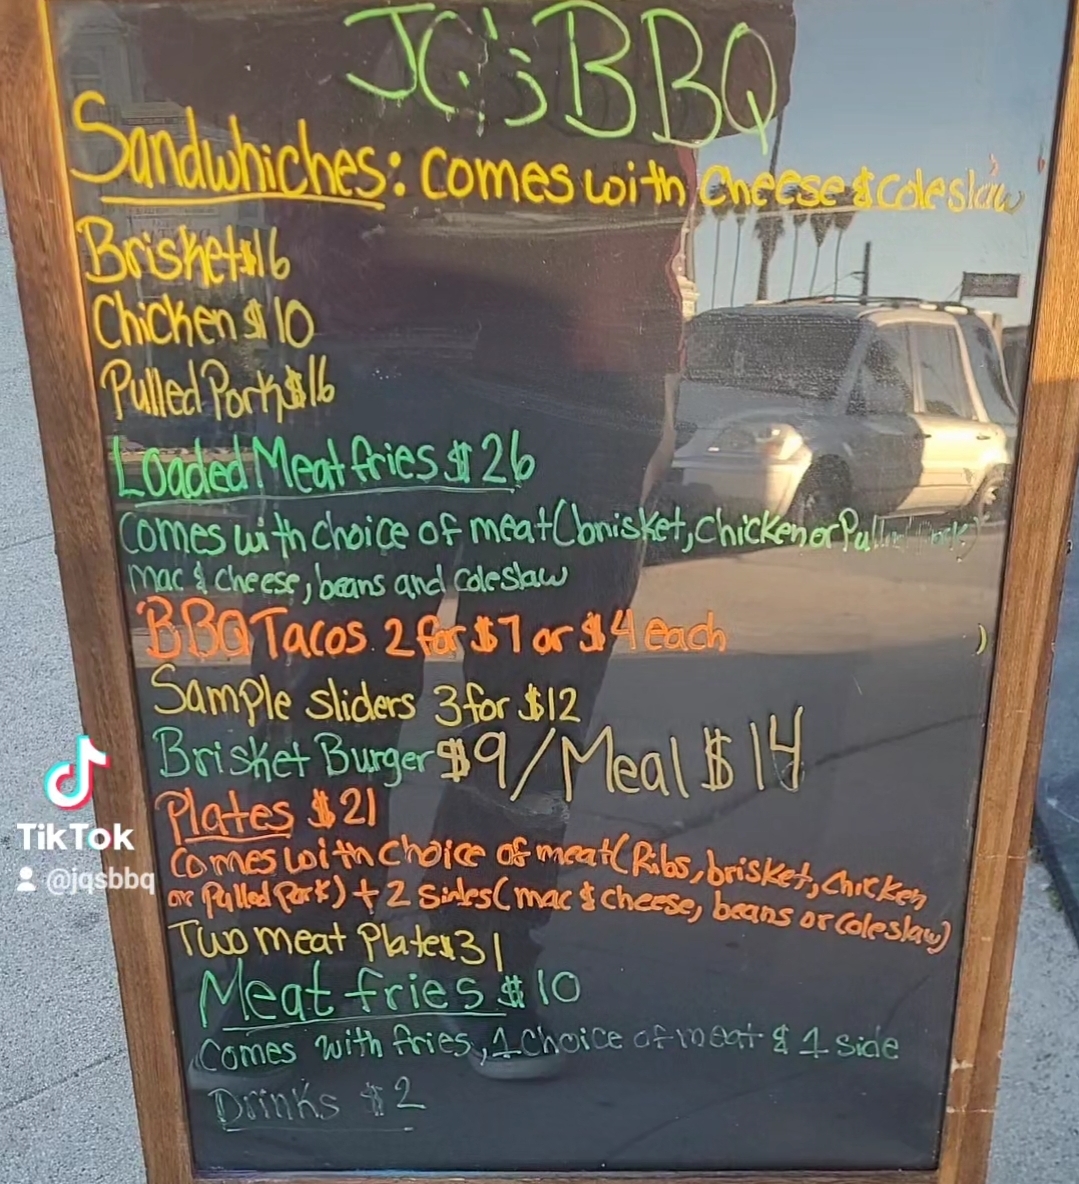 JQ's BBQ
Sandwhiches: Comes with Cheese & Coleslaw
Brisket $16
Chicken $10
Pulled Pork $16
Loaded Meat fries $26
Comes with choice of meat (brisket, chicken or Pulled Pork)
mac & cheese, beans and coleslaw
BBQ Tacos 2 for $7 or $4 each
Sample sliders 3 for $12
Brisket Burger $9/Meal $14
Plates $21
Comes with choice of meat (Ribs, brisket, chicken
or Pulled Pork) + 2 Sides (mac & cheese, beans or coleslaw)
Two meat Plate $31
Meat fries $10
Comes with fries, 1 choice of meat & 1 side
Drinks $2
TikTok
@jqsbbq